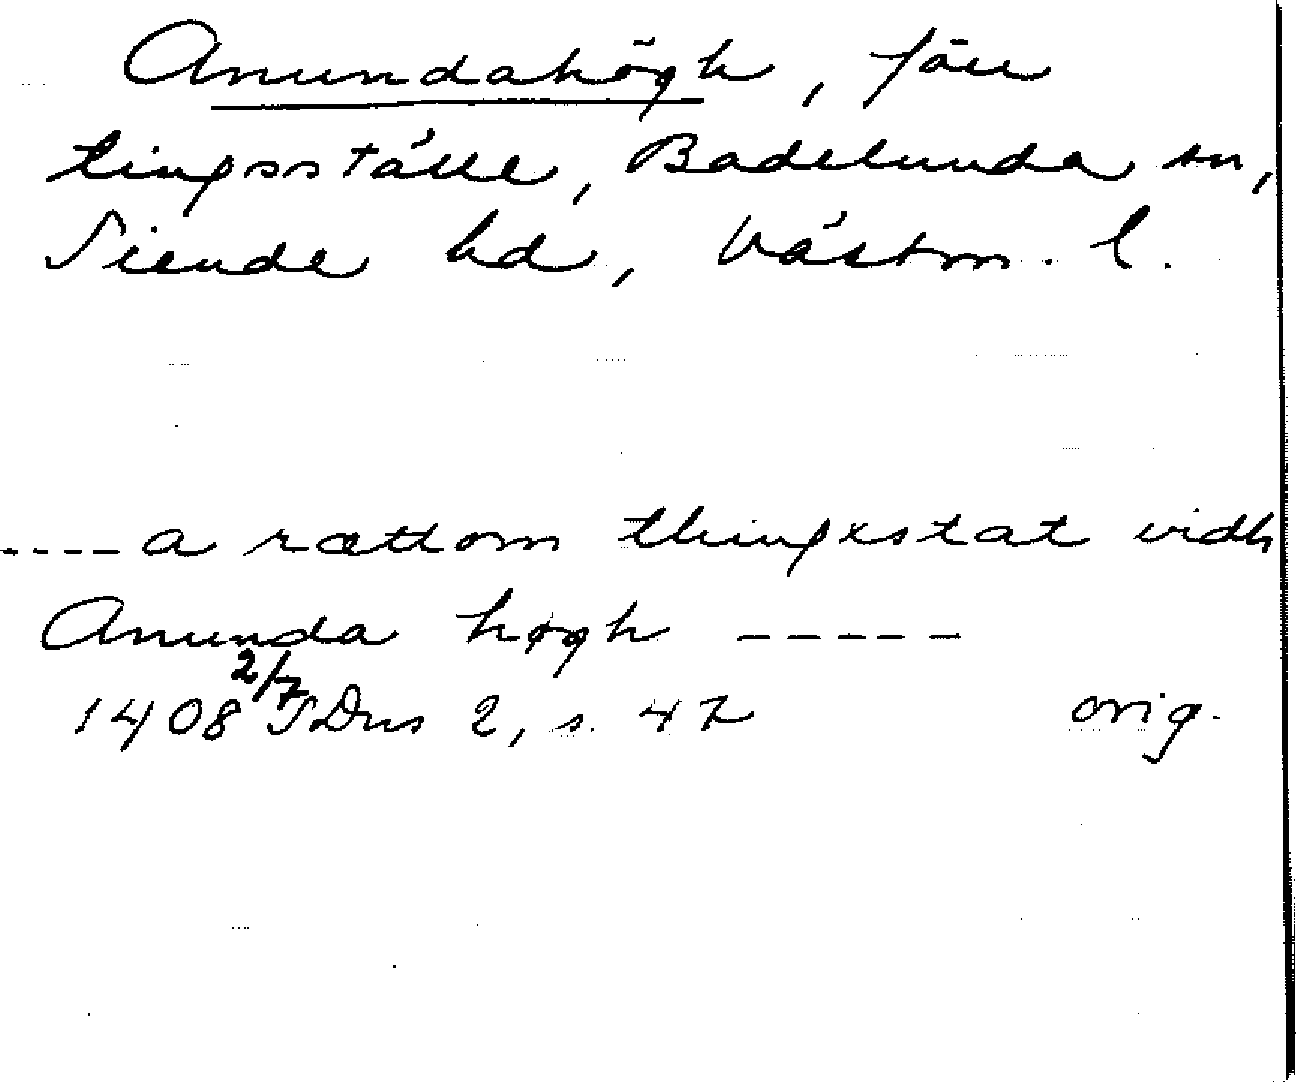 Anundahögh, förr
tingsställe, Badelunda sn,
Siende hd, Västm. l.
---- a rættom thingxstat vidh
Anunda høgh -----
1408 2/7 SDns 2, s. 47 orig.